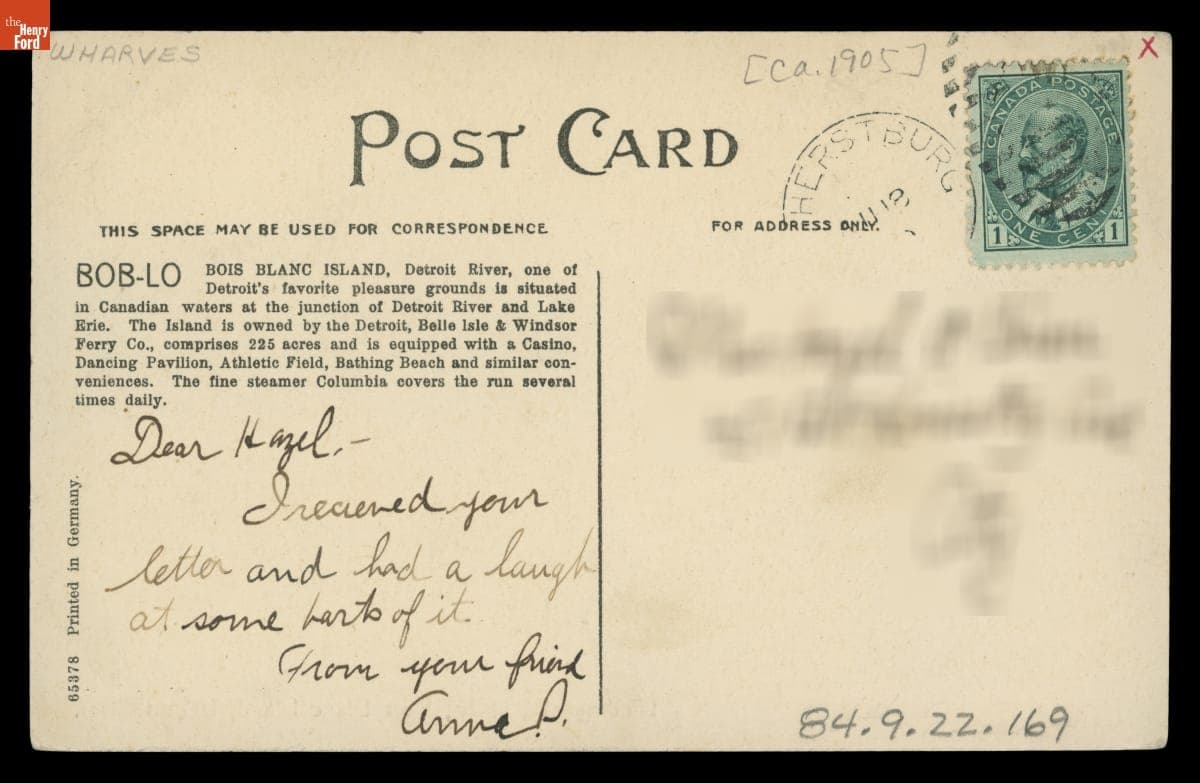 the
Henry
Ford
WHARVES
[Ca. 1905]
X
POST CARD
HERSTBURG
CANADA POSTAGE
1 ONE CENT 1
THIS SPACE MAY BE USED FOR CORRESPONDENCE
FOR ADDRESS ONLY.
BOB-LO BOIS BLANC ISLAND, Detroit River, one of
Detroit's favorite pleasure grounds is situated
in Canadian waters at the junction of Detroit River and Lake
Erie. The Island is owned by the Detroit, Belle Isle & Windsor
Ferry Co., comprises 225 acres and is equipped with a Casino,
Dancing Pavilion, Athletic Field, Bathing Beach and similar con-
veniences. The fine steamer Columbia covers the run several
times daily.
Dear Hazel.—
I recieved your
letter and had a laugh
at some parts of it.
From your friend
Anna P.
65378 Printed in Germany.
84.9.22.169